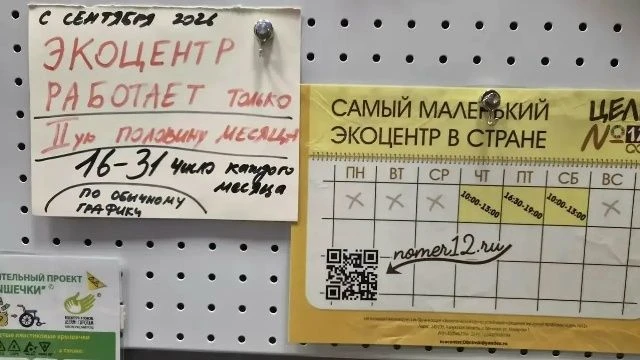 С СЕНТЯБРЯ 2026
ЭКОЦЕНТР
РАБОТАЕТ ТОЛЬКО
II ую ПОЛОВИНУ МЕСЯЦА
16-31 число каждого
месяца
ПО ОБЫЧНОМУ
ГРАФИКУ
САМЫЙ МАЛЕНЬКИЙ
ЭКОЦЕНТР В СТРАНЕ
ЦЕЛ
№12
ПН ВТ СР ЧТ ПТ СБ ВС
10:00-13:00 16:30-19:00 10:00-13:00
nomer12.ru
ИТЕЛЬНЫЙ ПРОЕКТ
ЫШЕЧКИ"
стые пластиковые крышечки
а также: